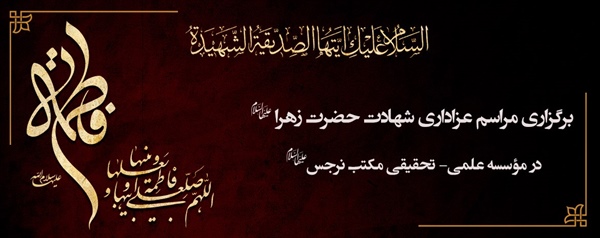 السلام علیك ایتها الصدیقة الشهیدة
فاطمة
سلام الله علیها
اللهم صل علی فاطمة و ابیها و بعلها و بنیها
برگزاری مراسم عزاداری شهادت حضرت زهرا علیهاالسلام
در مؤسسه علمی- تحقیقی مکتب نرجس علیهاالسلام